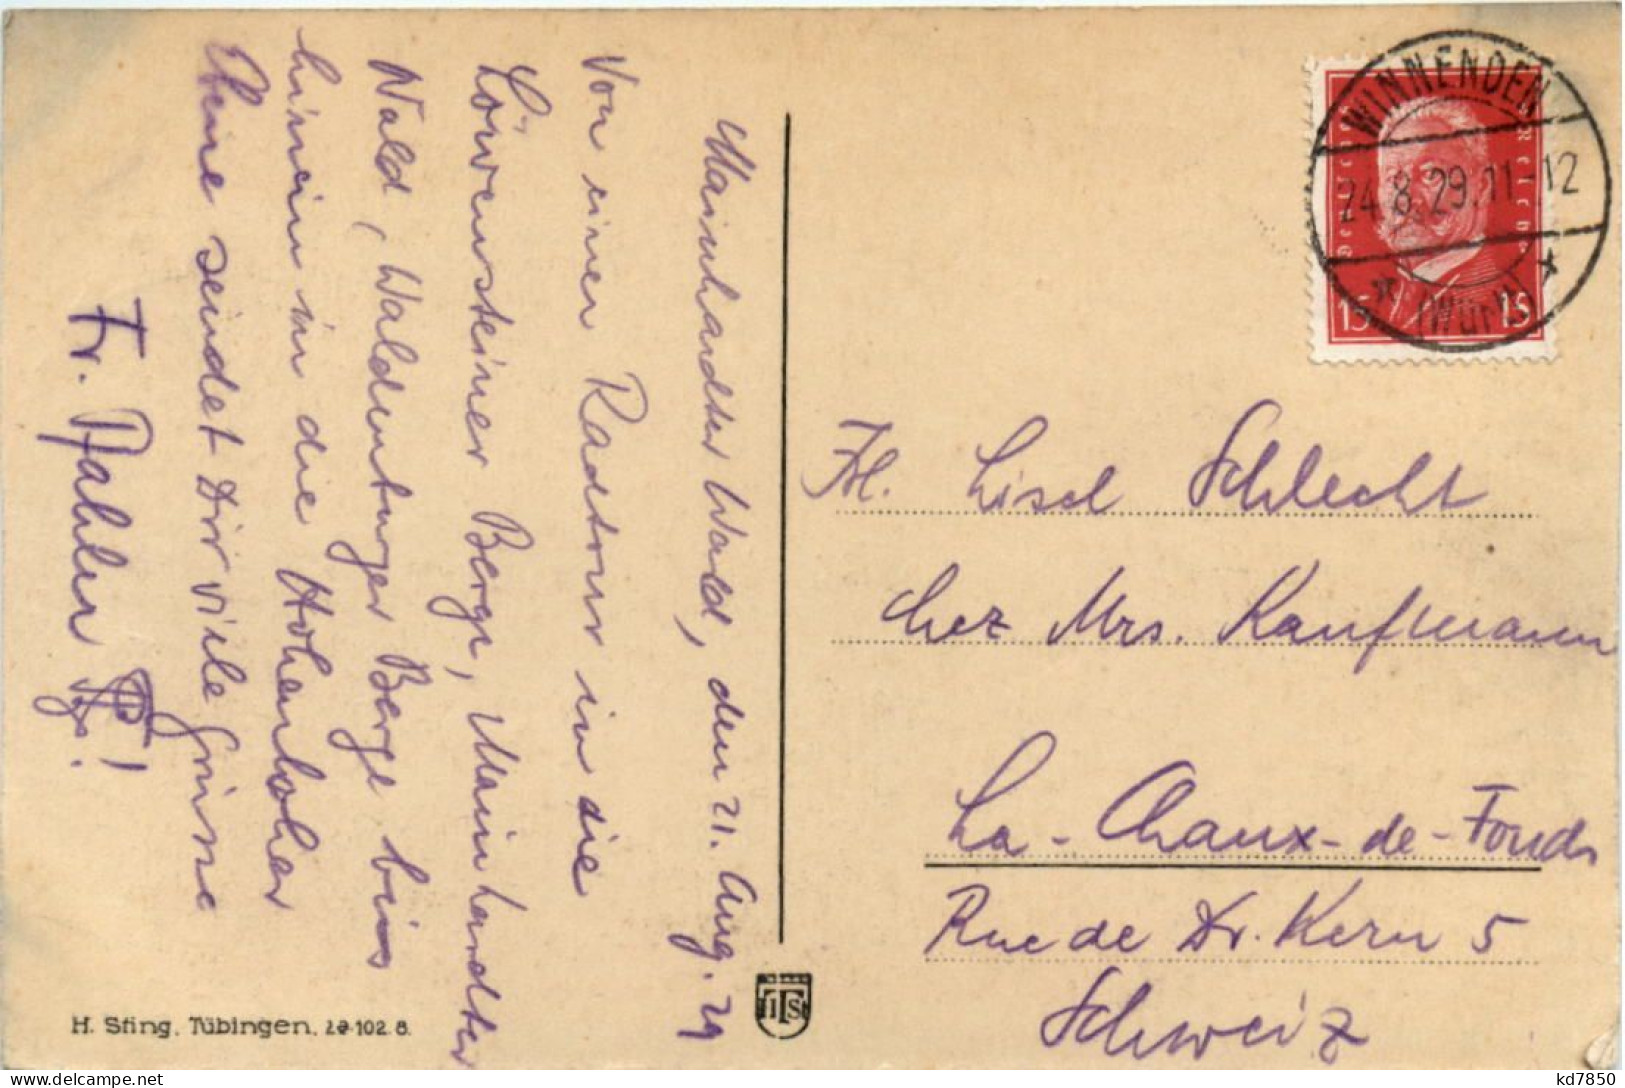 Mainhardter Wald, den 21. Aug. 29
Von einer Radtour in die
Löwensteiner Berge, Mainhardter
Wald, Waldenburger Berge bis
hinein in die Hohenloher
Ebene sendet Dir viele Grüsse
Fr. Pfahler
WINNENDEN
24.8.29.11-12
* (Württ) *
Deutsches Reich
15 15
Frl. Lisel Schlecht
chez Mrs. Kaufmann
La-Chaux-de-Fonds
Rue de Dr. Kern 5
Schweiz
H. Sting, Tübingen, 29-102 8.
HTS
kd7850